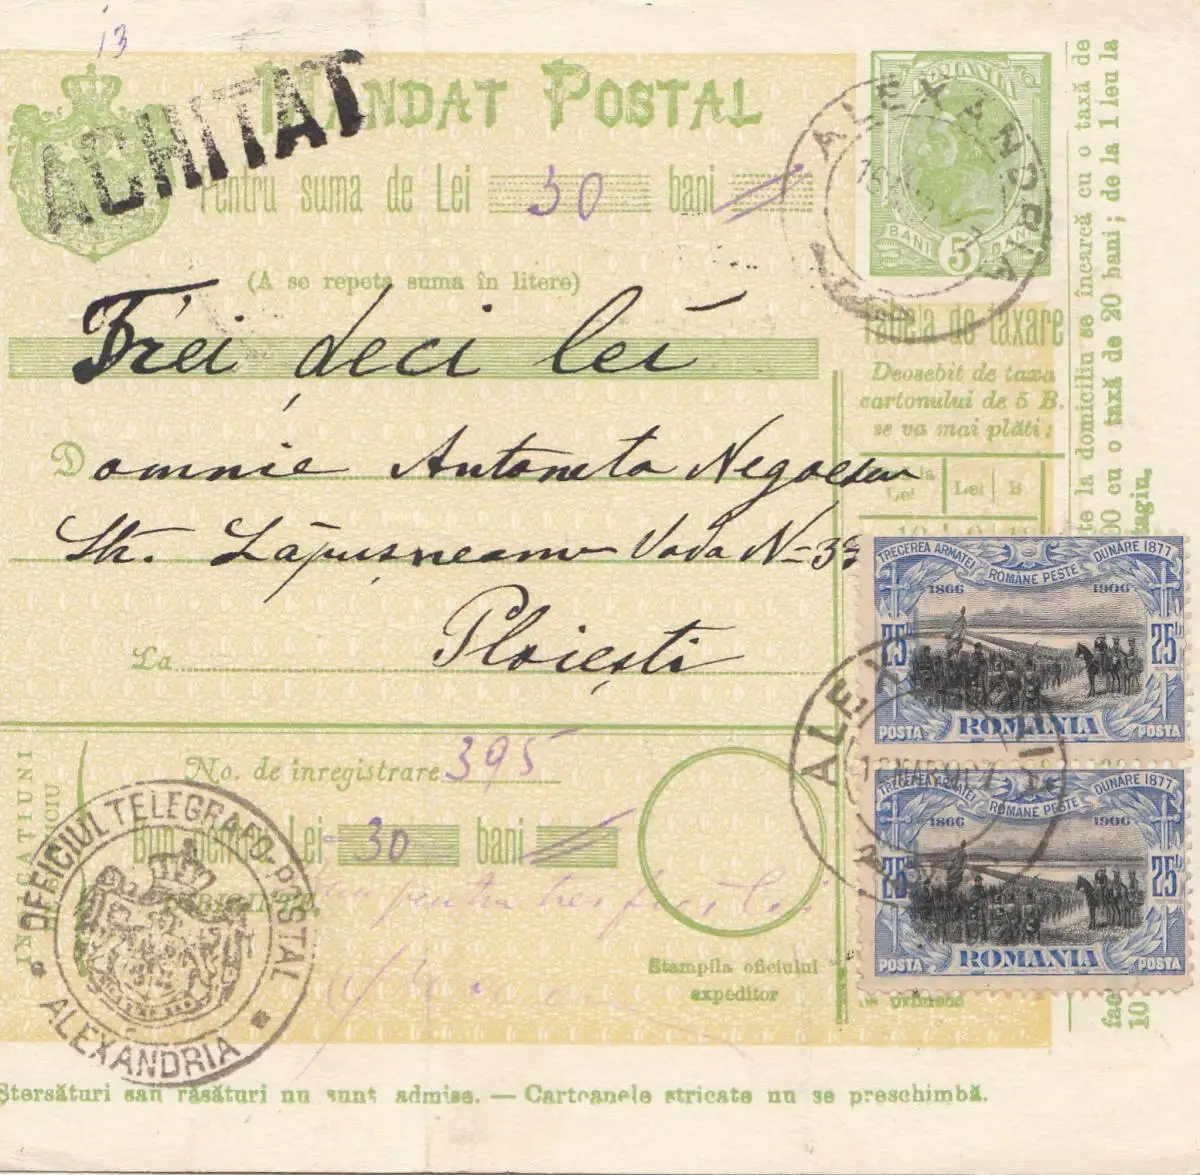 13
MANDAT POSTAL
ACHITAT
Pentru suma de Lei 30 bani
(A se repeta suma în litere)
Trei deci lei
Domnie Antoneta Negoescu
Str. Lăpușneanu Vodă N-
La Ploiești
No. de înregistrare 395
Bun pentru Lei 30 bani
pentru trei
Stampila oficiului
expeditor
OFFICIUL TELEGRAFO-POSTAL
* ALEXANDRIA *
INDICATIUNI
ROMANIA
BANI 5 BANI
ALEXANDRIA
Tabela de taxare
Deosebit de taxa
cartonului de 5 B.
se va mai plăti:
Lei Lei B.
TRECEREA ARMATEI ROMÂNE PESTE DUNARE 1877
1866 1906
25 B 25 B
POSTA ROMANIA POSTA
ALEXANDRI
TRECEREA ARMATEI ROMÂNE PESTE DUNARE 1877
1866 1906
25 B 25 B
POSTA ROMANIA POSTA
te la domiciliu se încarcă cu o taxă de
00 cu o taxă de 20 bani; de la 1 leu la
Stersături sau răsături nu sunt admise. — Cartoanele stricate nu se preschimbă.